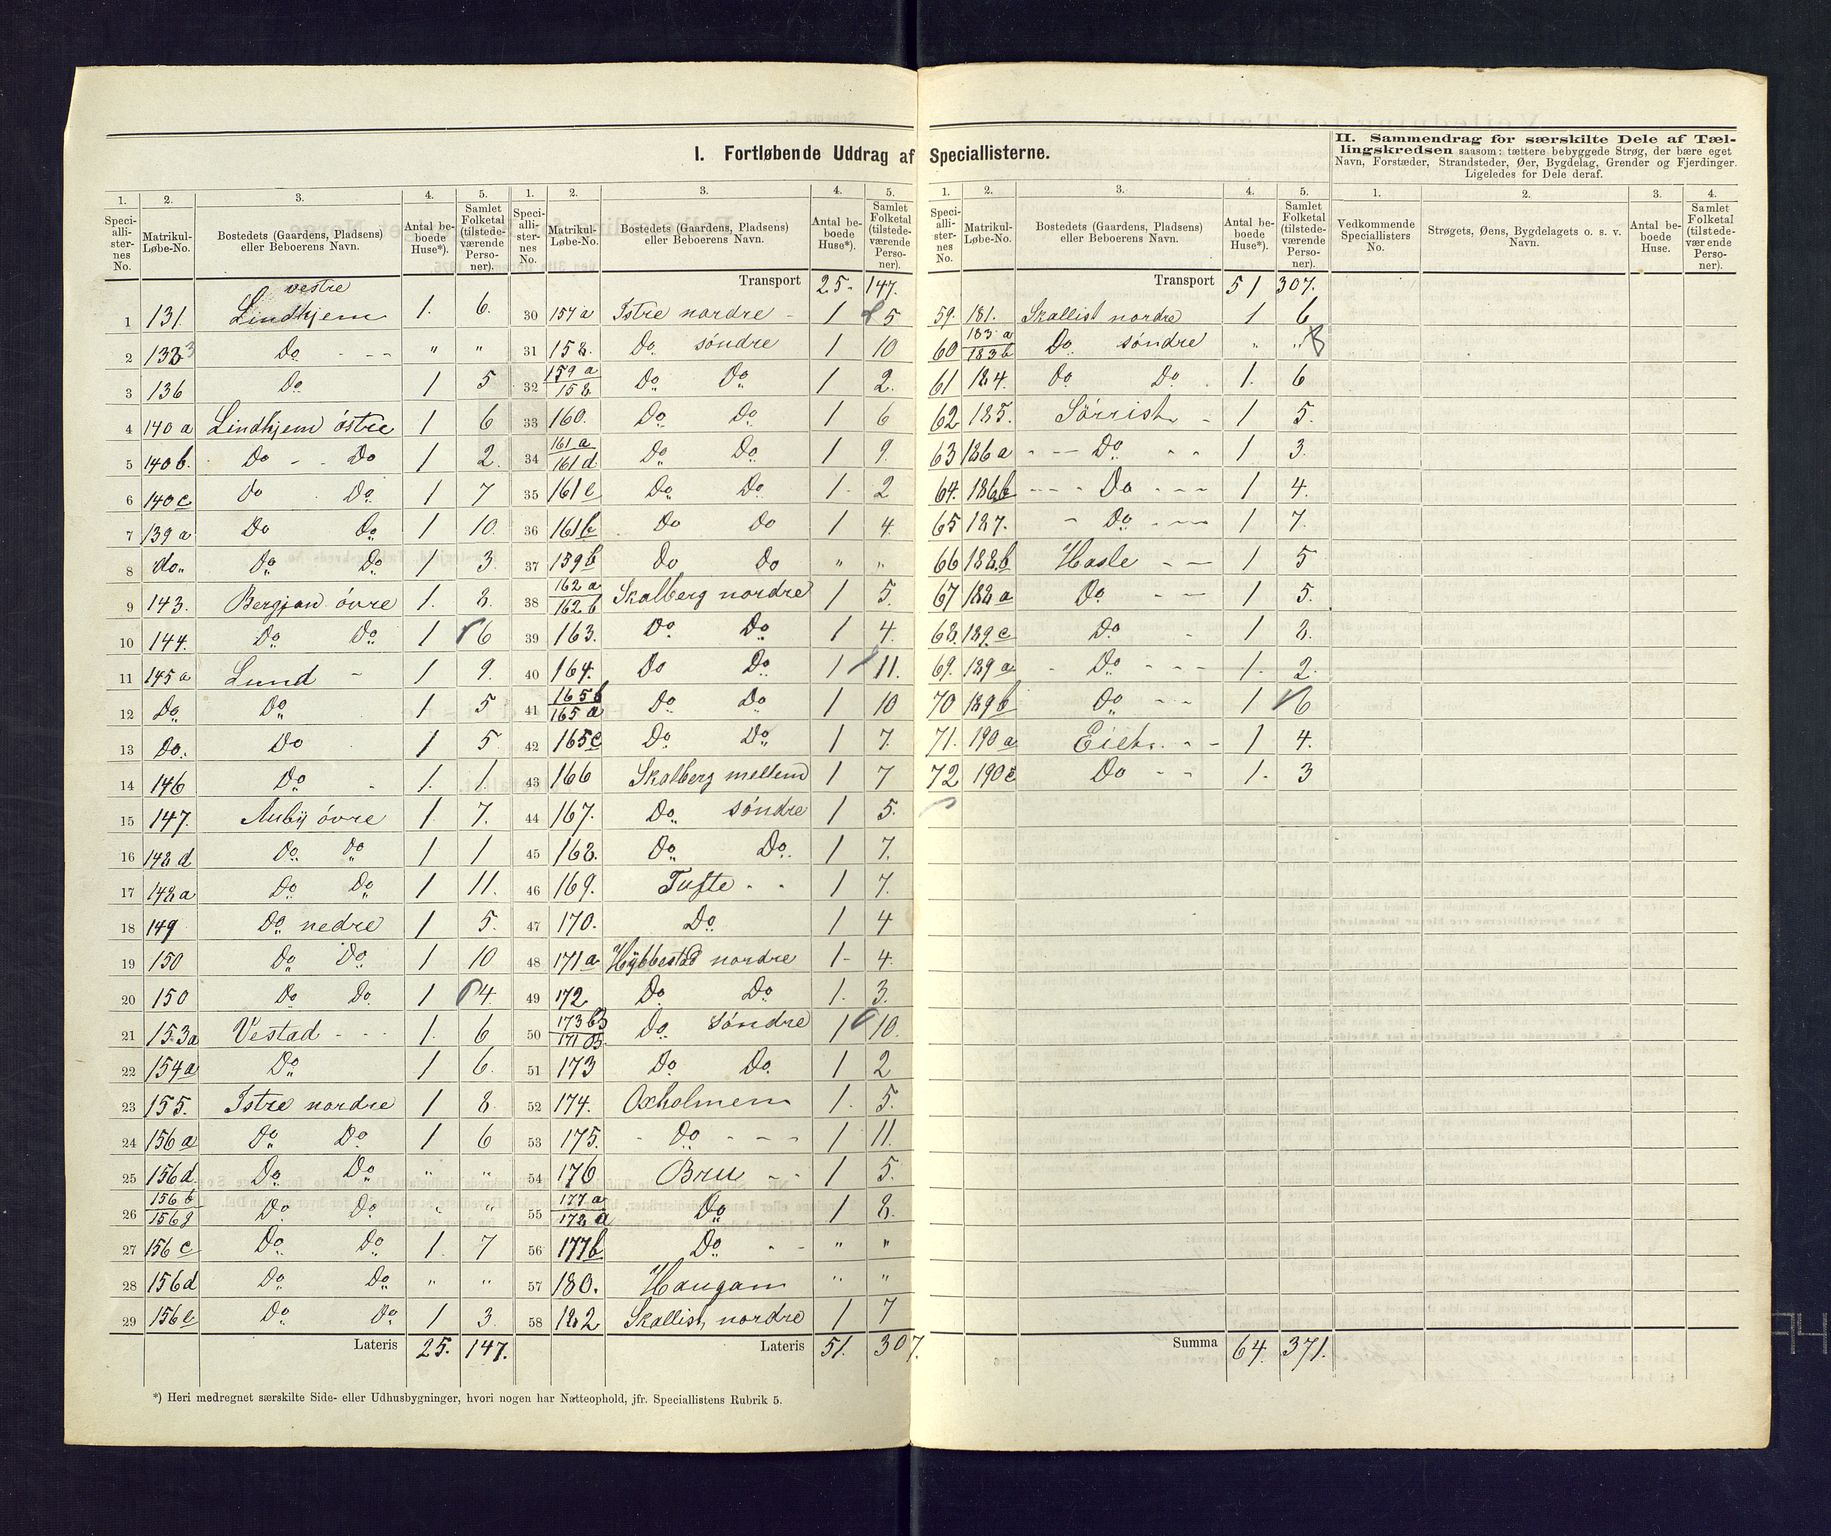 I. Fortløbende Uddrag af Speciallisterne.
II. Sammendrag for særskilte Dele af Tæl-
lingskredsen saasom: tættere bebyggede Strøg, der bære eget
Navn, Forstæder, Strandsteder, Øer, Bygdelag, Grender og Fjerdinger.
Ligeledes for Dele deraf.
1. 2. 3. 4. 5.
Speciallisternes No. Matrikul-Løbe-No. Bostedets (Gaardens, Pladsens) eller Beboerens Navn. Antal beboede Huse*). Samlet Folketal (tilstedeværende Personer).
1 131 Lindhjem vestre 1. 6.
2 133 Do - - - " "
3 136 Do 1 5
4 140 a Lindhjem östre 1 6
5 140 b. Do - - Do 1 2.
6 140 c Do Do. 1 7
7 139 a Do Do 1 10.
8 do Do Do 1 3.
9 143. Bergjan övre 1. 8.
10 144. Do Do 1 6
11 145 a Lund - 1 9.
12 Do Do 1 5
13 Do. Do 1 5.
14 146 Do 1. 1.
15 147. Auby övre 1. 7.
16 148 d Do. Do 1 1
17 148 a Do Do 1 11.
18 149 Do nedre 1 5.
19 150 Do Do. 1 10
20 150 Do Do. 1 4.
21 153 a Vestad - - - 1. 6
22 154 a Do 1 6.
23 155. Istre nordre 1 8
24 156 a Do Do 1 6
25 156 d. Do Do " "
26 156 b 156 g Do Do. " "
27 156 c Do Do 1. 7
28 156 d Do Do " "
29 156 e Do Do 1 3.
Lateris 25. 147.
1. 2. 3. 4. 5.
Speciallisternes No. Matrikul-Løbe-No. Bostedets (Gaardens, Pladsens) eller Beboerens Navn. Antal beboede Huse*). Samlet Folketal (tilstedeværende Personer).
Transport 25- 147.
30 157 a Istre nordre - 1 5
31 158. Do söndre 1 10
32 159 a 158 Do Do 1 2.
33 160. Do Do 1 6
34 161 a 161 d. Do Do 1 9.
35 161 c Do Do 1- 2
36 161 b Do Do 1 4.
37 159 b Do Do " "
38 162 a 162 b Skalberg nordre 1 5.
39 163. Do Do 1 4.
40 164. Do Do. 1 11.
41 165 b 165 a Do Do 1 10
42 165 c Do Do 1 7.
43 166 Skalberg mellem 1 7
44 167. Do söndre 1 5.
45 168. Do Do. 1 7.
46 169. Tufte - - 1 7.
47 170. Do 1 4
48 171 a Hybbestad nordre 1- 4.
49 172 Do Do 1. 3.
50 173 b Do söndre 1 10.
51 173 Do Do. 1 2
52 174. Oxholmen 1. 5.
53 175. - Do - - - 1 11.
54 176 Bru - - 1 5.
55 177 a 178 a Do 1 8.
56 177 b Do - - " "
57 180. Haugan " "
58 182 Skallist nordre 1 7
Lateris 51. 307.
1. 2. 3. 4. 5.
Speciallisternes No. Matrikul-Løbe-No. Bostedets (Gaardens, Pladsens) eller Beboerens Navn. Antal beboede Huse*). Samlet Folketal (tilstedeværende Personer).
Transport 51 307.
59. 181. Skallist nordre 1 6
60 183 a 183 b Do söndre " "
61 184. Do Do. 1. 6
62 185. Sörrist - 1 5.
63 186 a - - Do - - 1 3.
64. 186 b - - - Do - - - 1 4.
65 187. - Do - - - 1 7.
66 188 b Hasle - - 1 5
67 188 a Do - - 1 5.
68 189 c Do - 1 8.
69. 189 a - Do - - - 1. 2.
70 189 b Do - - 1 6
71. 190 a Eiek - - 1 4.
72 190 c Do - - 1. 3
Summa 64. 371.
1. 2. 3. 4.
Vedkommende Speciallisters No. Strøgets, Øens, Bygdelagets o. s. v. Navn. Antal beboede Huse. Samlet Folketal (tilstedeværende Personer).
*) Heri medregnet særskilte Side- eller Udhusbygninger, hvori nogen har Natteophold, jfr. Speciallistens Rubrik 5.